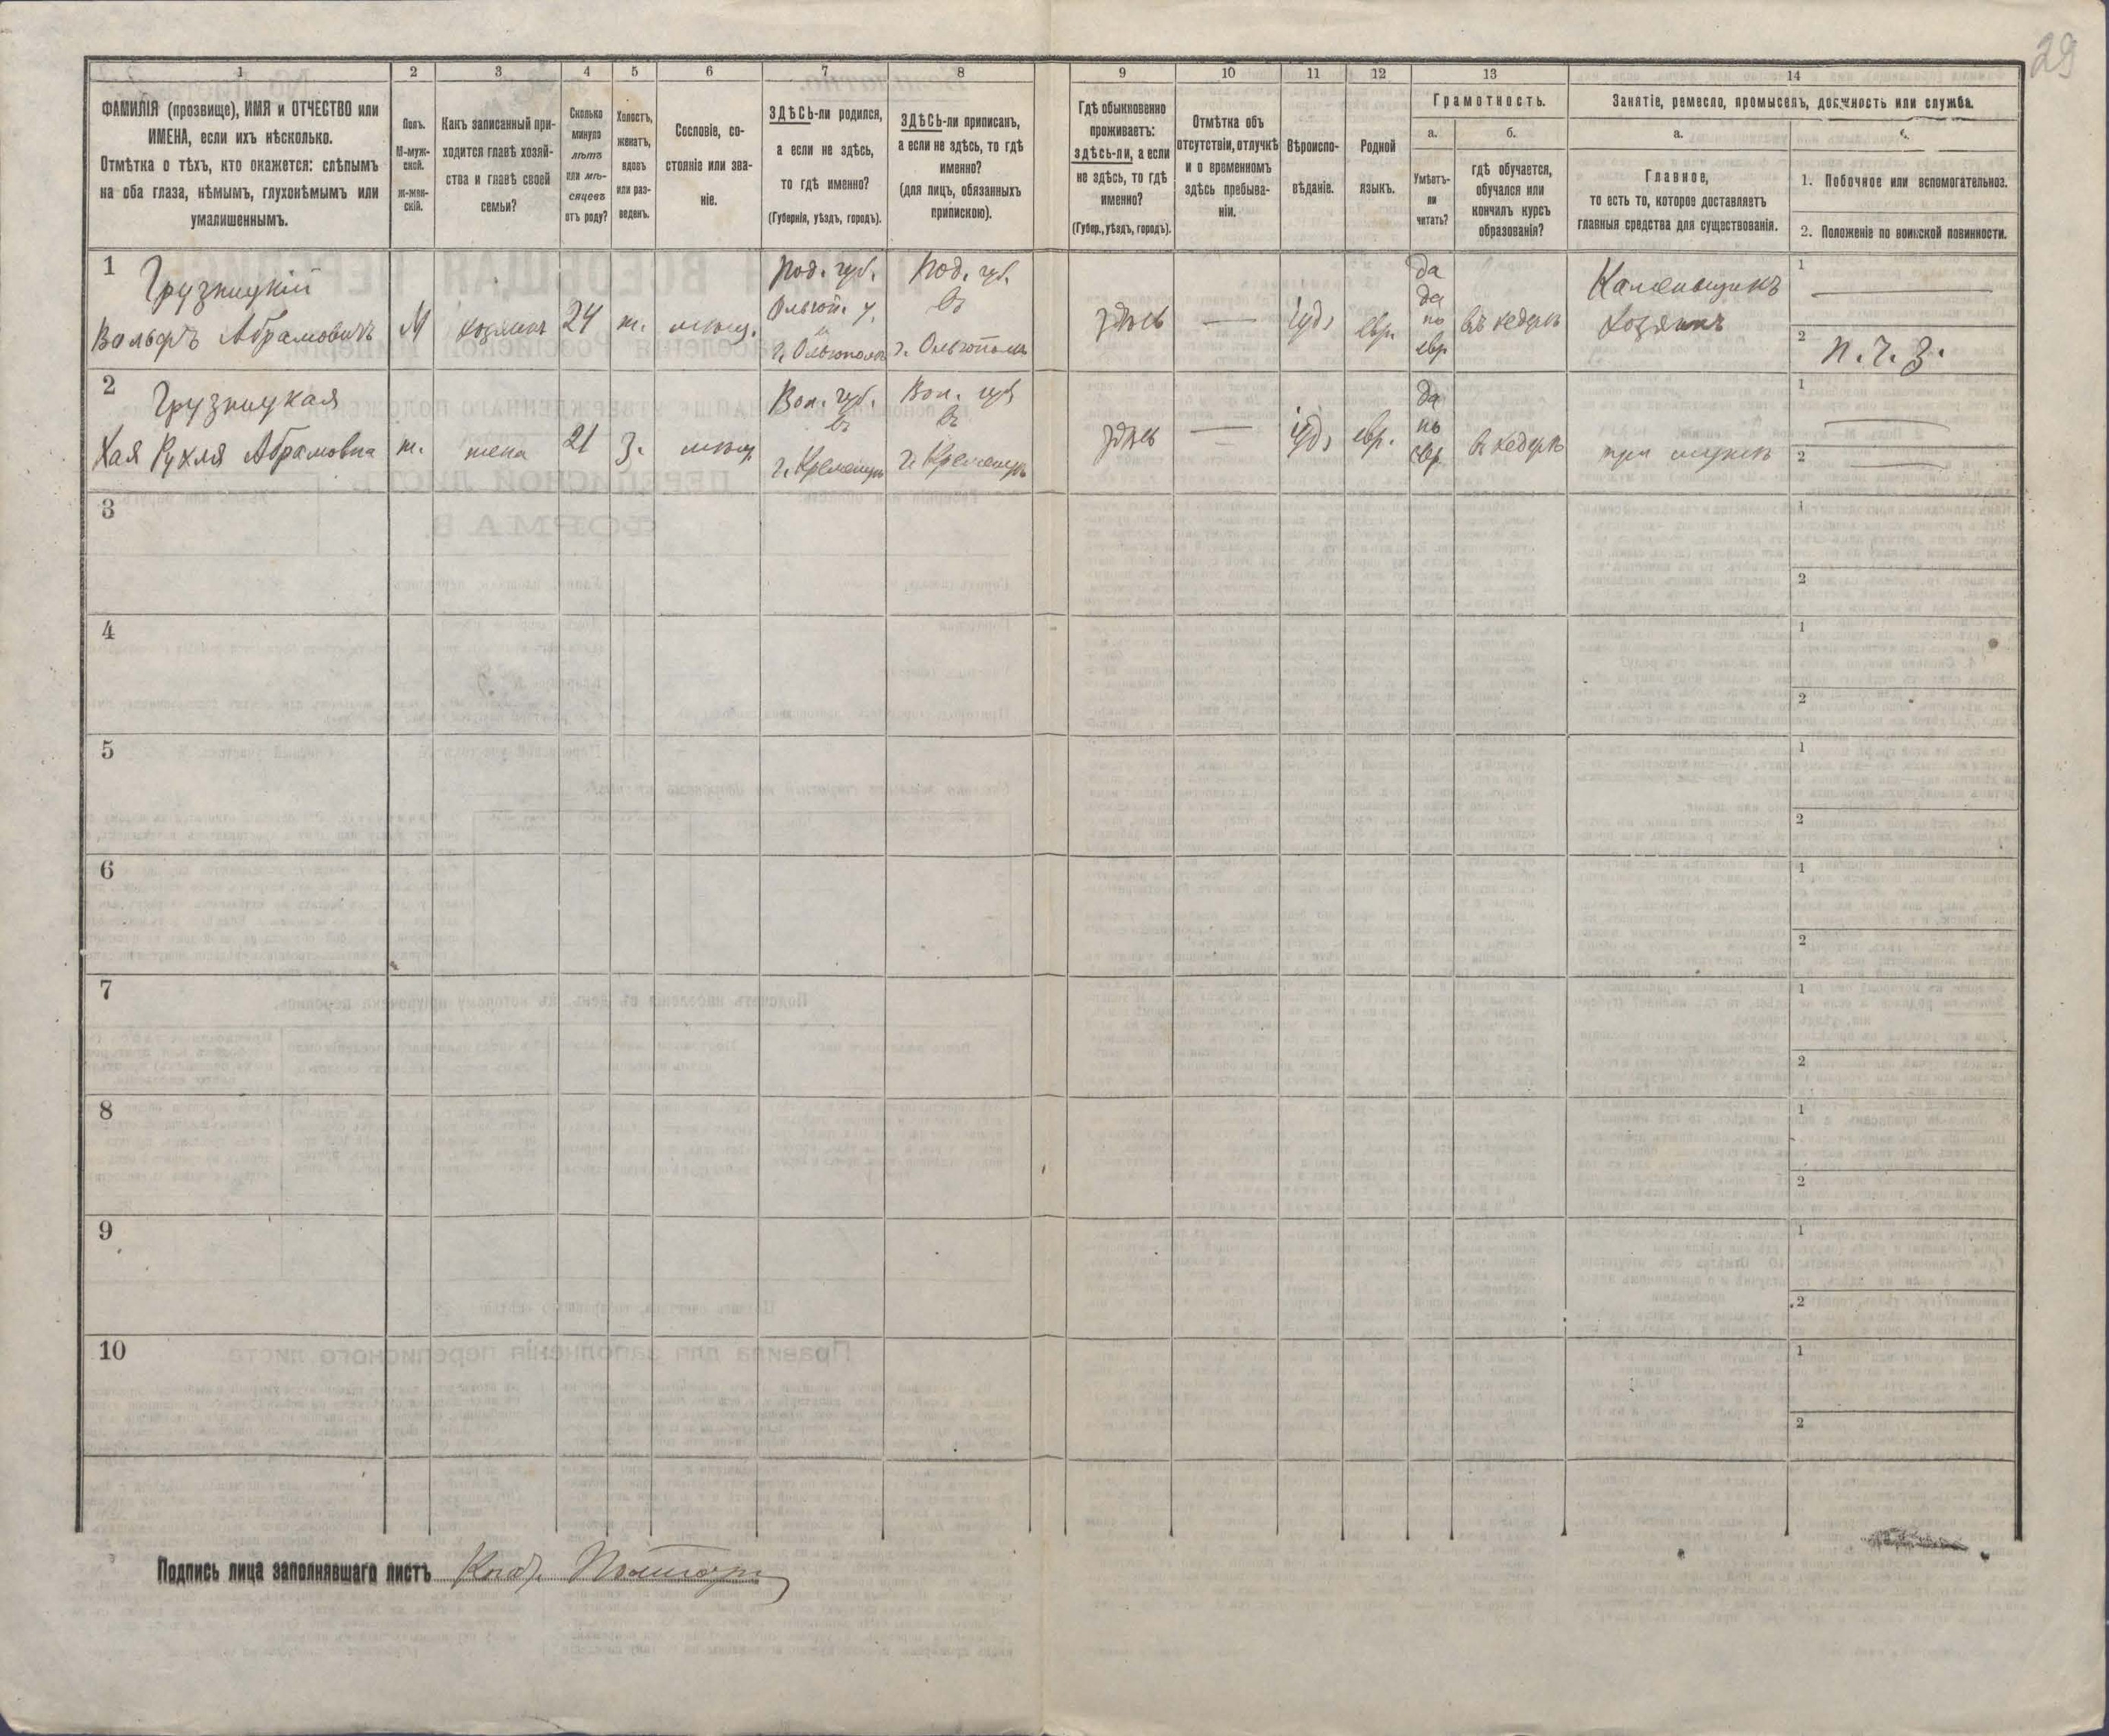 29
1 2 3 4 5 6 7 8 9 10 11 12 13 14
ФАМИЛІЯ (прозвище), ИМЯ и ОТЧЕСТВО или
ИМЕНА, если ихъ нѣсколько.
Отмѣтка о тѣхъ, кто окажется: слѣпымъ
на оба глаза, нѣмымъ, глухонѣмымъ или
умалишеннымъ.
Полъ.
М-муж-
ской.
ж-жен-
скій.
Какъ записанный при-
ходится главѣ хозяй-
ства и главѣ своей
семьи?
Сколько
минуло
лѣтъ
или мѣ-
сяцевъ
отъ роду?
Холостъ,
женатъ,
вдовъ
или раз-
веденъ.
Сословіе, со-
стояніе или зва-
ніе.
ЗДѢСЬ-ли родился,
а если не здѣсь,
то гдѣ именно?
(Губернія, уѣздъ, городъ).
ЗДѢСЬ-ли приписанъ,
а если не здѣсь, то гдѣ
именно?
(для лицъ, обязанныхъ
припискою).
Гдѣ обыкновенно
проживаетъ:
здѣсь-ли, а если
не здѣсь, то гдѣ
именно?
(Губер., уѣздъ, городъ).
Отмѣтка объ
отсутствіи, отлучкѣ
и о временномъ
здѣсь пребыва-
ніи.
Вѣроиспо-
вѣданіе.
Родной
языкъ.
Грамотность.
а.
Умѣетъ-
ли
читать?
б.
гдѣ обучается,
обучался или
кончилъ курсъ
образованія?
Занятіе, ремесло, промыселъ, должность или служба.
а.
Главное,
то есть то, которое доставляетъ
главныя средства для существованія.
1. Побочное или вспомогательное.
2. Положеніе по воинской повинности.
1
Грузницкій
Вольфъ Абрамовичъ
М
хозяинъ
24
ж.
мѣщ.
Под. губ.
Ольгоп. у.
г. Ольгополь
Под. губ.
въ
г. Ольгополь
здѣсь
—
іуд.
евр.
да
да
по
евр
въ хедерѣ
Каменьщикъ
хозяинъ
1
2 п. ч. з.
2
Грузницкая
Хая Рухля Абрамовна
ж.
жена
21
з.
мѣщ
Вол. губ.
въ
г. Кременцѣ
Вол. губ
въ
г. Кременцѣ
здѣсь
—
іуд.
евр.
да
по
евр
въ хедерѣ
при мужѣ
1
2
3
1
2
4
1
2
5
1
2
6
1
2
7
1
2
8
1
2
9
1
2
10
1
2
Подпись лица заполнявшаго листъ